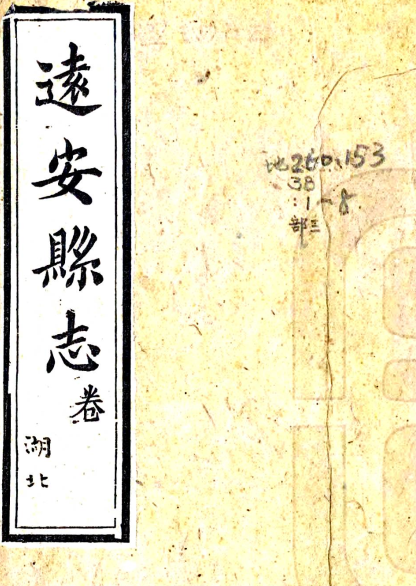 遠安縣志
卷
湖
北
地260.153
38
:1-8
部三